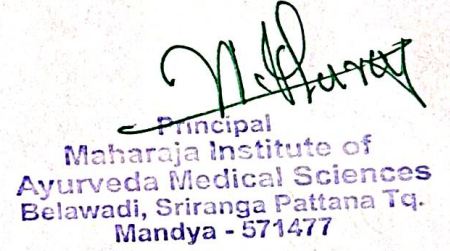 Principal
Maharaja Institute of
Ayurveda Medical Sciences
Belawadi, Sriranga Pattana Tq.
Mandya - 571477